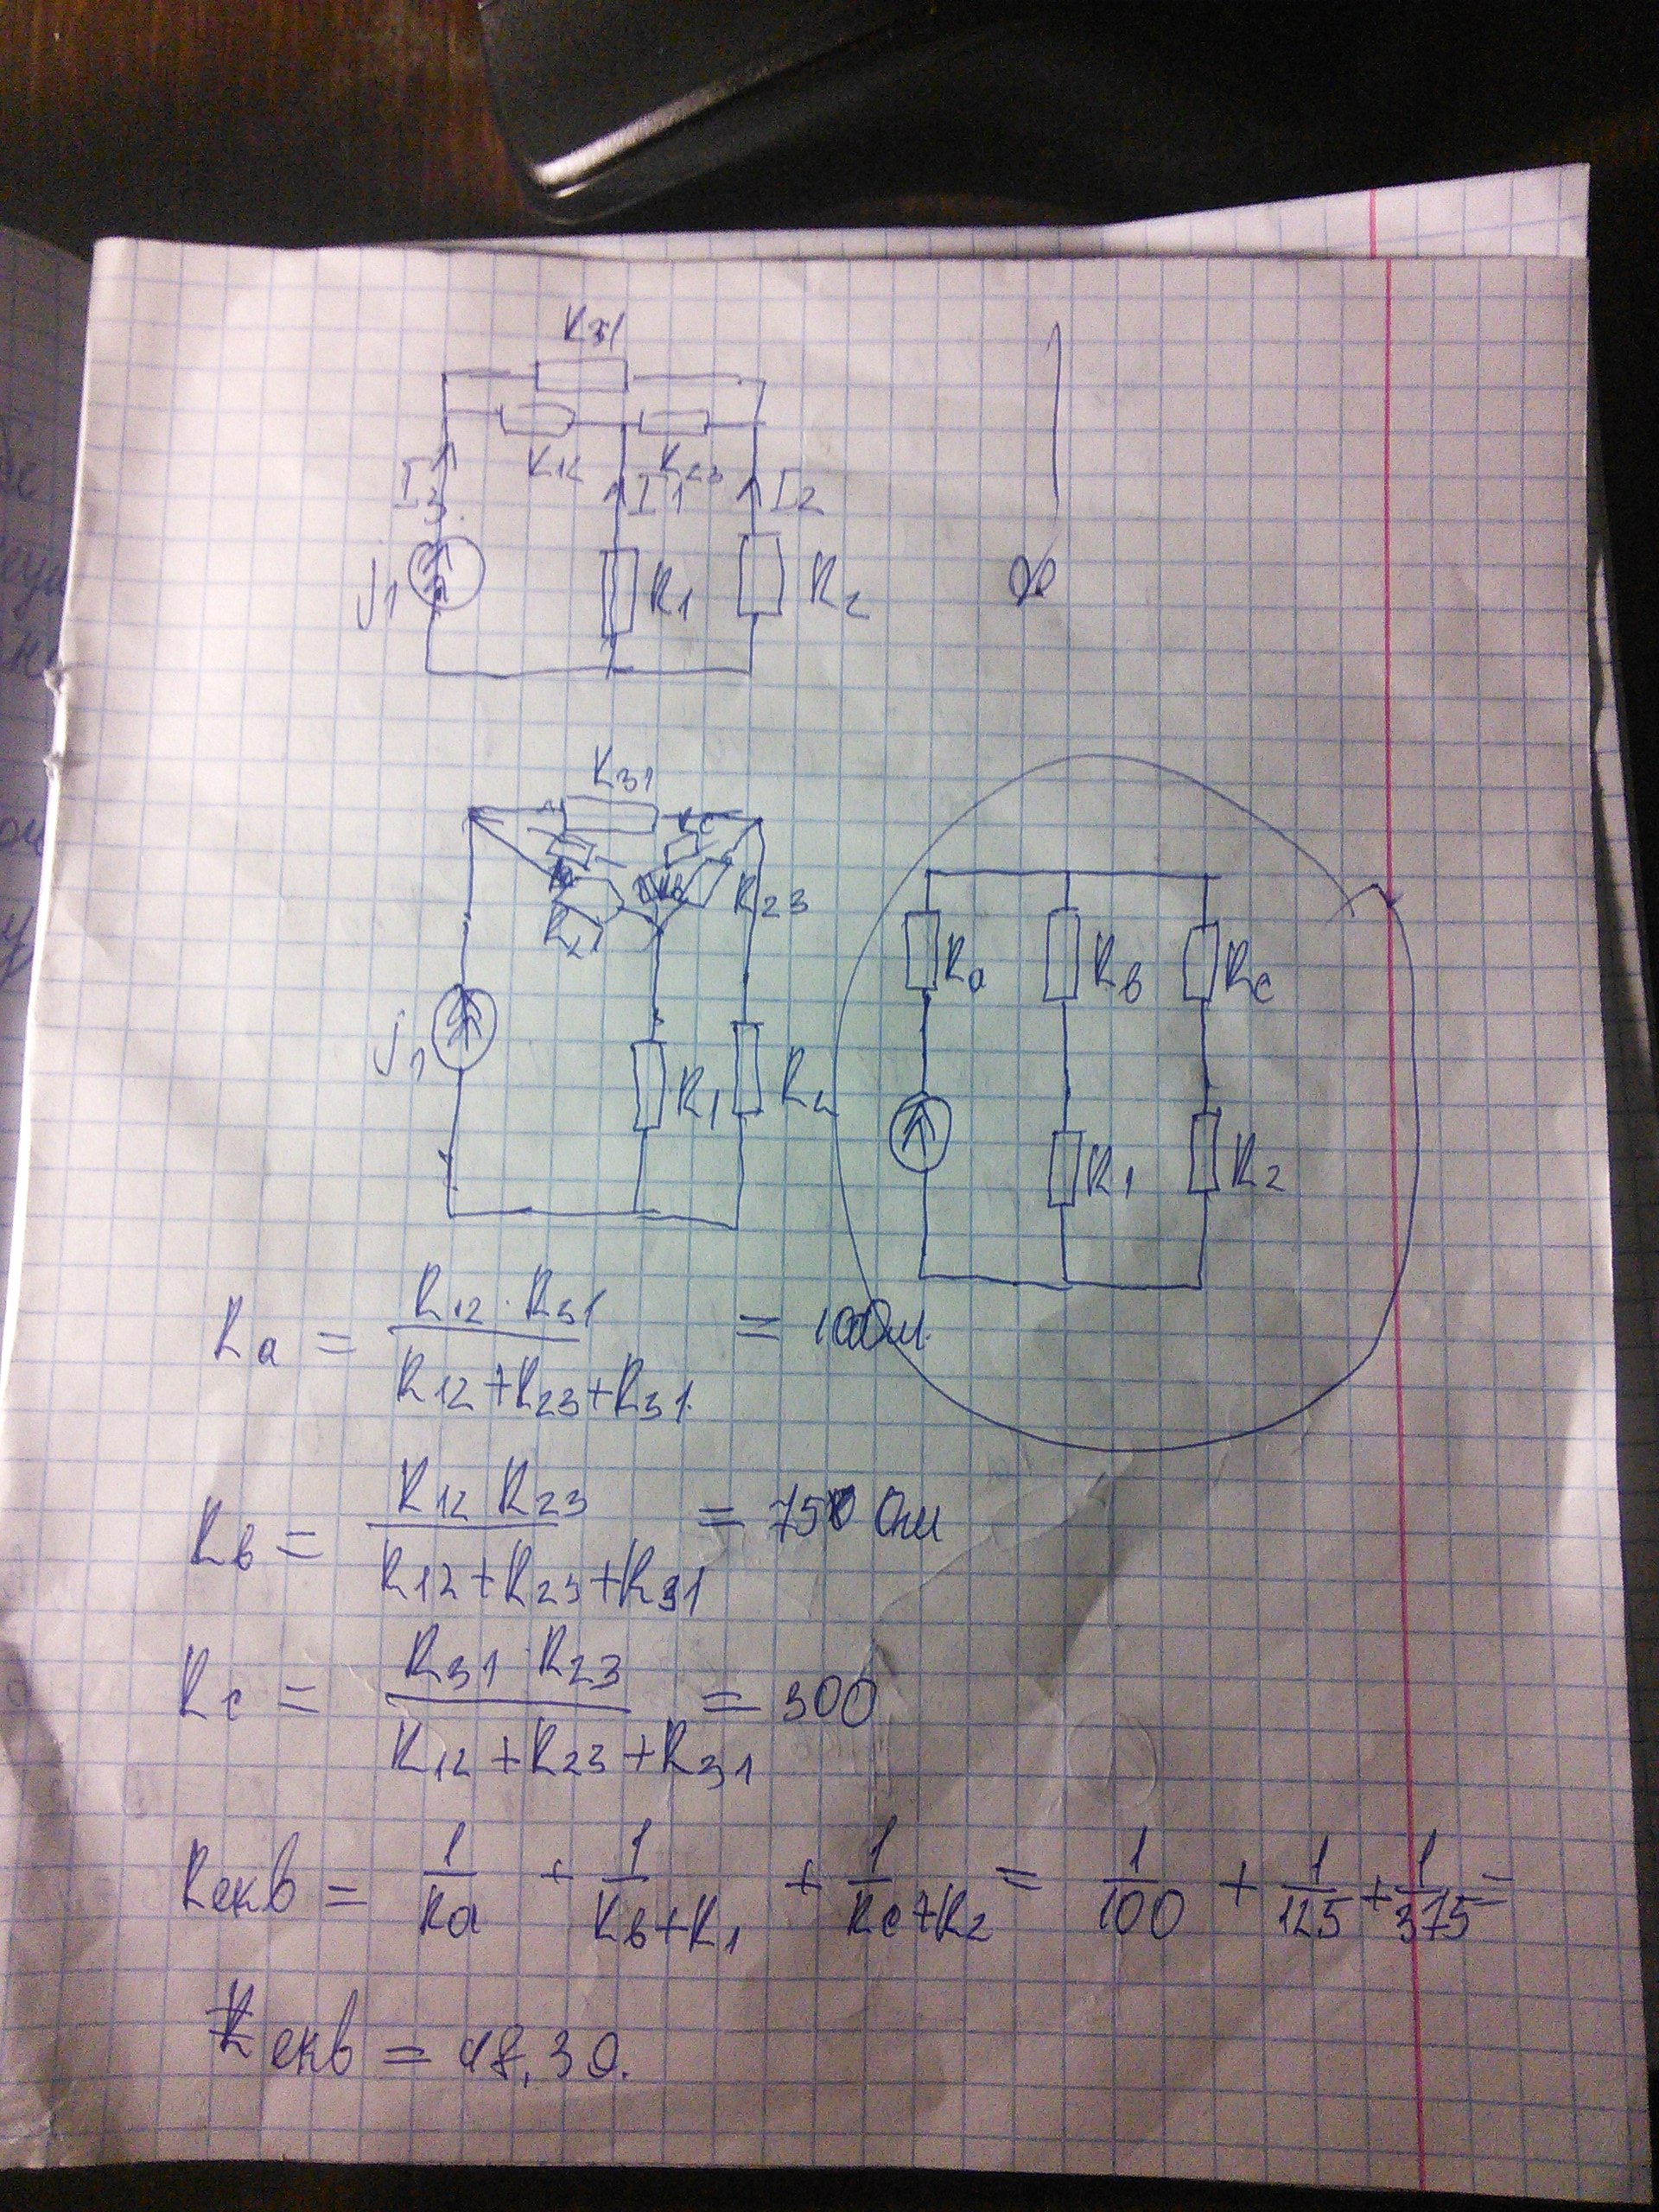 R31
R12 R23
I3 I1 I2
j1 R1 R2
R31
R23
R21
Ra Rв Rc
j1 R1 R2
R1 R2
Ra = R12 · R31 / R12+R23+R31 = 100 Ом
Rв = R12 R23 / R12+R23+R31 = 75 Ом
Rc = R31 · R23 / R12+R23+R31 = 300
Rекв = 1/Ra + 1/Rв+R1 + 1/Rc+R2 = 1/100 + 1/125 + 1/375 =
Rекв = 48,30.